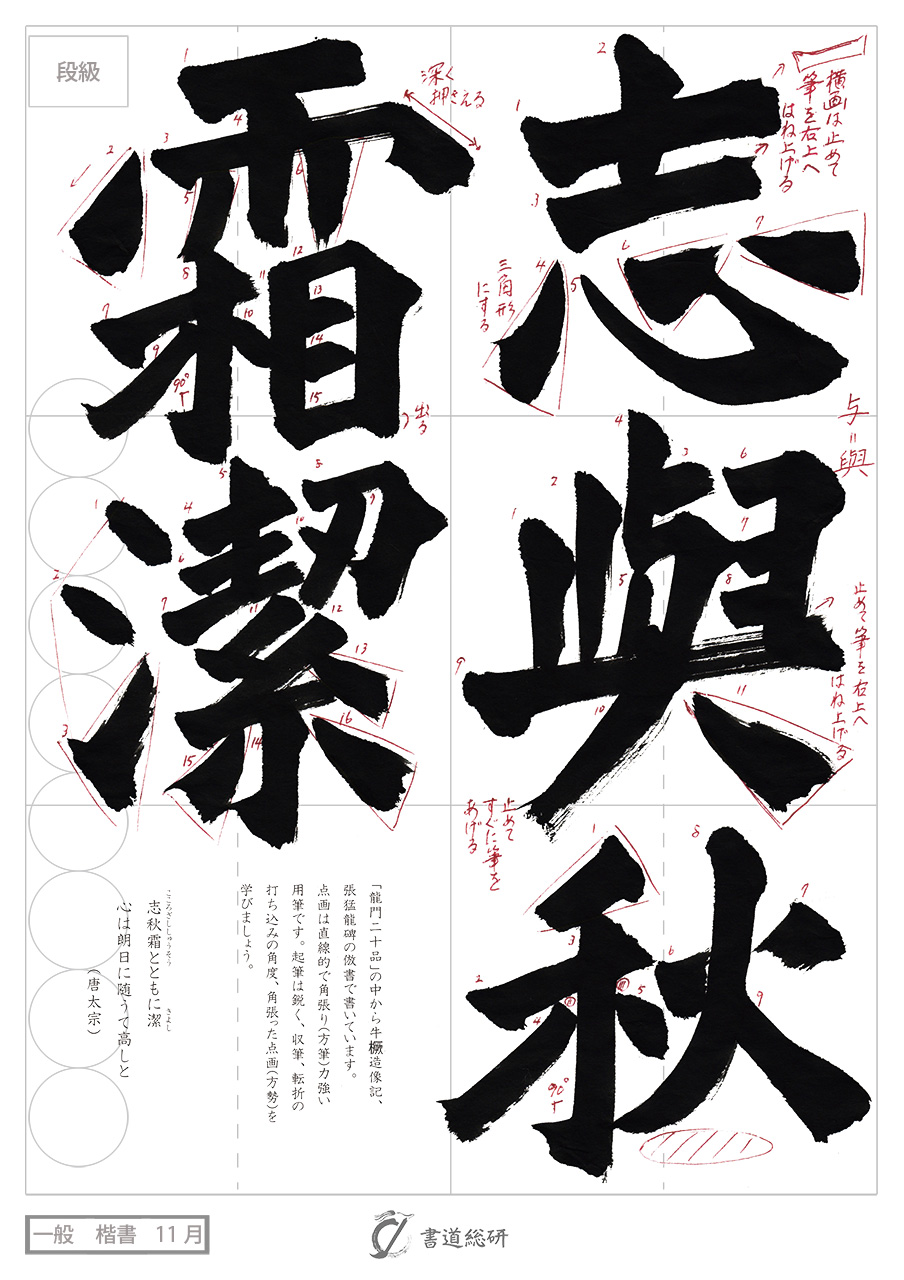 段級
志與秋
霜潔
横画は止めて
筆を右上へ
はね上げる
深く
押さえる
三角形
にする
出る
与=與
止めて筆を右上へ
はね上げる
止めて
すぐに筆を
あげる
90°
90°
「龍門二十品」の中から牛橛造像記、
張猛龍碑の倣書で書いています。
点画は直線的で角張り(方筆)力強い
用筆です。起筆は鋭く、収筆、転折の
打ち込みの角度、角張った点画(方勢)を
学びましょう。
こころざししゅうそう きよし
志秋霜とともに潔
心は朗日に随うて高しと
(唐太宗)
一般 楷書 11月
書道総研